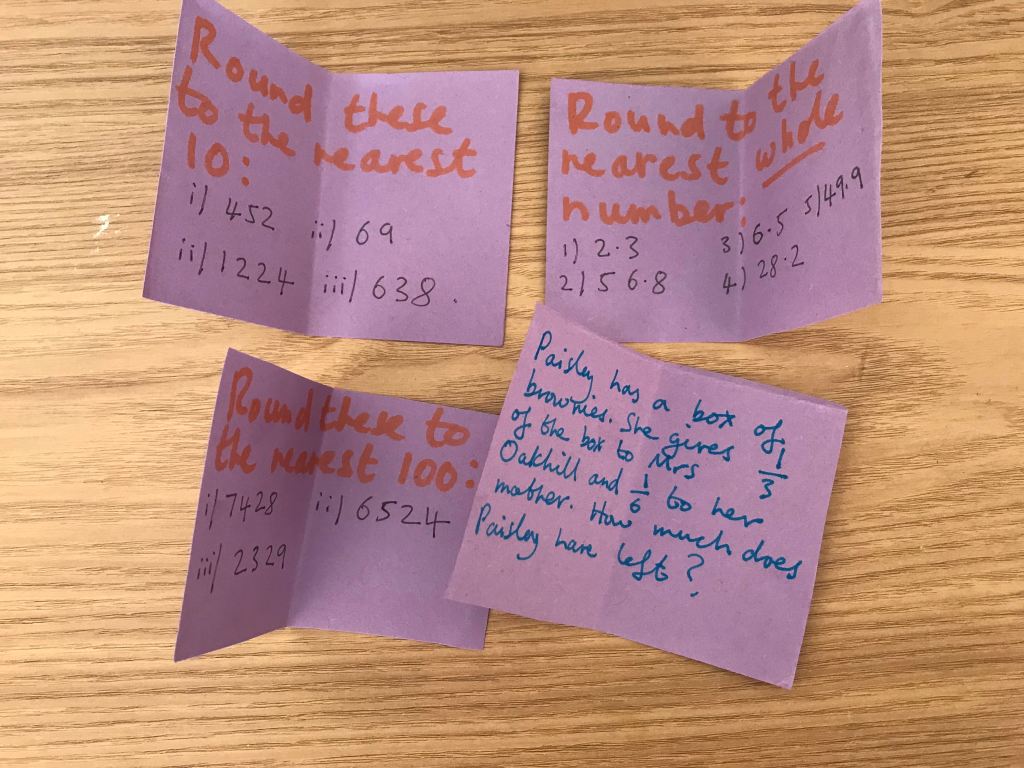 Round these
to the nearest
10:
i/ 452 ii/ 69
ii/ 1224 iii/ 638.
Round to the
nearest whole
number:
1) 2.3 3) 6.5 5/ 49.9
2) 56.8 4) 28.2
Round these to
the nearest 100:
i/ 7428 ii/ 6524
iii/ 2329
Paisley has a box of
brownies. She gives 1/3
of the box to Mrs
Oakhill and 1/6 to her
mother. How much does
Paisley have left?